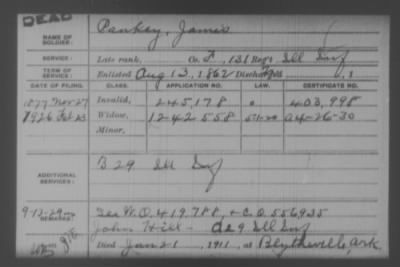 DEAD
NAME OF SOLDIER: Pankey, James
SERVICE: Late rank, Co. F, 131 Reg't Ill Inf
TERM OF SERVICE: Enlisted Aug 13, 1862 Discharged , 1
DATE OF FILING. CLASS. APPLICATION NO. LAW. CERTIFICATE NO.
1877 Nov 27 Invalid, 245,178 403,998
1926 Feb 23 Widow, 1242558 a4-26-30
Minor,
ADDITIONAL SERVICES: B 29 Ill Inf
9-13-29
REMARKS: See W.O. 419,788, + C.O. 556935
John Hill - d29 Ill Inf
Died Jan 21, 1911, at Blytheville, Ark.